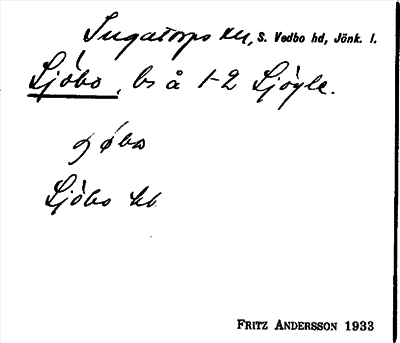 Ingatorps sn, S. Vedbo hd, Jönk. l.
Sjöbo, bs å 1-2 Sjögle.
Sjöbo kb
FRITZ ANDERSSON 1933